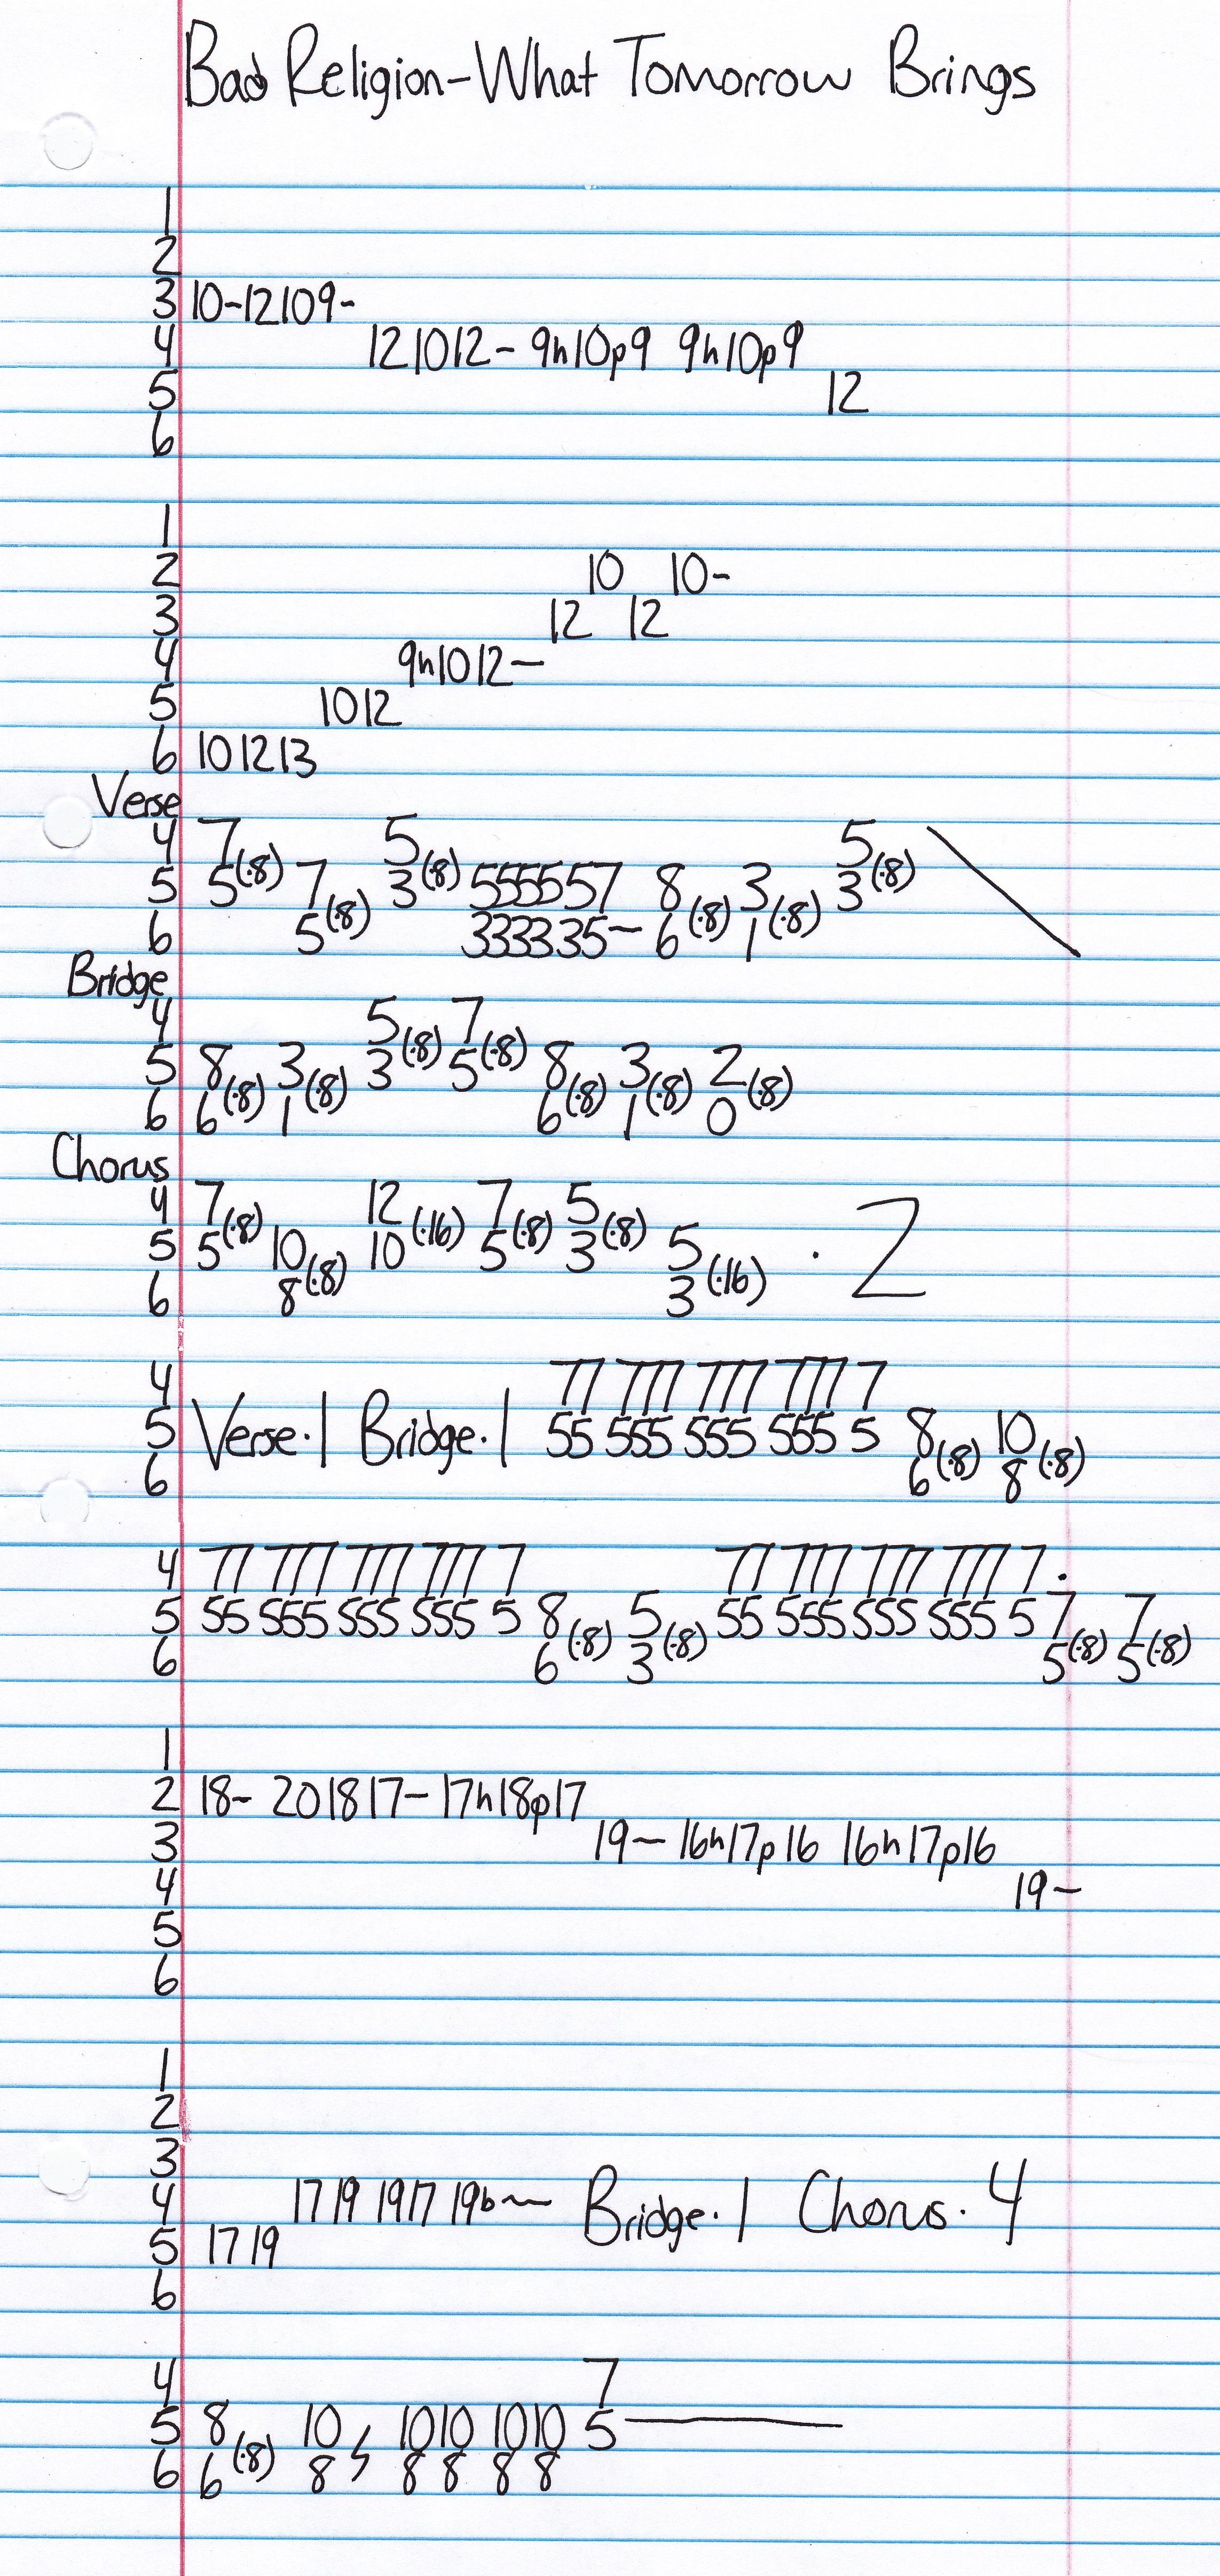 Bad Religion-What Tomorrow Brings
1
2
3 10-12109-
4 121012- 9h10p9 9h10p9
5 12
6
1
2 10 10-
3 12 12
4 9h1012-
5 1012
6 101213
Verse
4 7 5 5
5 5(·8) 7 3(·8) 5555557 8 3 3(·8)
6 5(·8) 3333335- 6(·8) 1(·8)
Bridge
4 5 7
5 8 3 3(·8) 5(·8) 8 3 2
6 6(·8) 1(·8) 6(·8) 1(·8) 0(·8)
Chorus
4 7 12 7 5
5 5(·8) 10 10(·16) 5(·8) 3(·8) 5 · 2
6 8(·8) 3(·16)
4 77 777 777 777 7
5 Verse·1 Bridge·1 55 555 555 555 5 8 10
6 6(·8) 8(·8)
4 77 777 777 777 7 77 777 777 777 7·
5 55 555 555 555 5 8 5 55 555 555 555 5 7 7
6 6(·8) 3(·8) 5(·8) 5(·8)
1
2 18- 201817- 17h18p17
3 19- 16h17p16 16h17p16
4 19-
5
6
1
2
3
4 1719 1917 19b~ Bridge·1 Chorus·4
5 1719
6
4 7
5 8 10 1010 1010 5
6 6(·8) 8 8 8 8 8